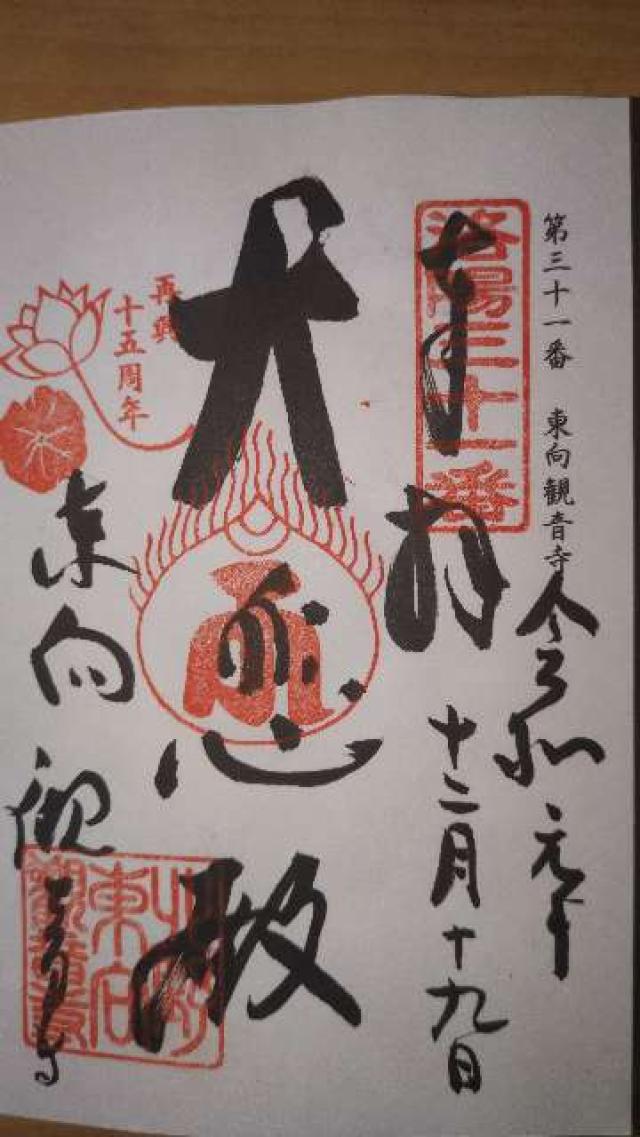 第三十一番 東向観音寺
令和元年
十二月十九日
奉拝
洛陽三十一番
大悲殿
再興
十五周年
東向観音寺